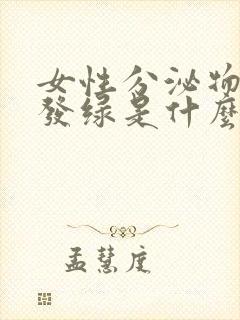 女性分泌物
發绿是什麼
孟慧度